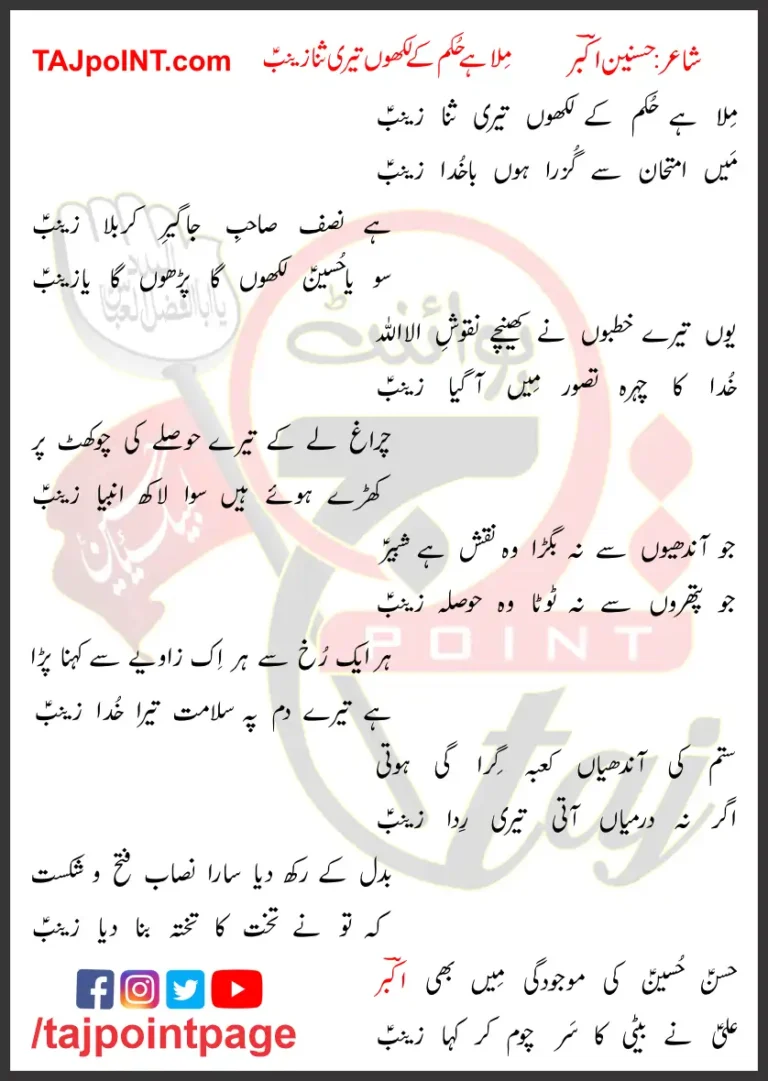 شاعر: حسنین اکبرؔ مِلا ہے حُکم کے لکھوں تیری ثنا زینبؑ TAJpoINT.com
مِلا ہے حُکم کے لکھوں تیری ثنا زینبؑ
مَیں امتحان سے گُزرا ہوں باخُدا زینبؑ
ہے نصف صاحبِ جاگیرِ کربلا زینبؑ
سو یاحُسینؑ لکھوں گا پڑھوں گا یازینبؑ
یوں تیرے خطبوں نے کھینچے نقوشِ الااللہ
خُدا کا چہرہ تصور مِیں آ گیا زینبؑ
چراغ لے کے تیرے حوصلے کی چوکھٹ پر
کھڑے ہوئے ہیں سوا لاکھ انبیا زینبؑ
جو آندھیوں سے نہ بگڑا وہ نقش ہے شبیرؑ
جو پتھروں سے نہ ٹوٹا وہ حوصلہ زینبؑ
ہر ایک رُخ سے ہر اِک زاویے سے کہنا پڑا
ہے تیرے دم پہ سلامت تیرا خُدا زینبؑ
ستم کی آندھیاں کعبہ گِرا گی ہوتی
اگر نہ درمیاں آتی تیری رِدا زینبؑ
بدل کے رکھ دیا سارا نصاب فتح و شکست
کہ تو نے تخت کا تختہ بنا دیا زینبؑ
حسنؑ حُسینؑ کی موجودگی مِیں بھی اکبرؔ
علیؑ نے بیٹی کا سَر چوم کر کہا زینبؑ
/tajpointpage
پوائنٹ
تاج
POINT
taj
لبیک یا حسینؑ